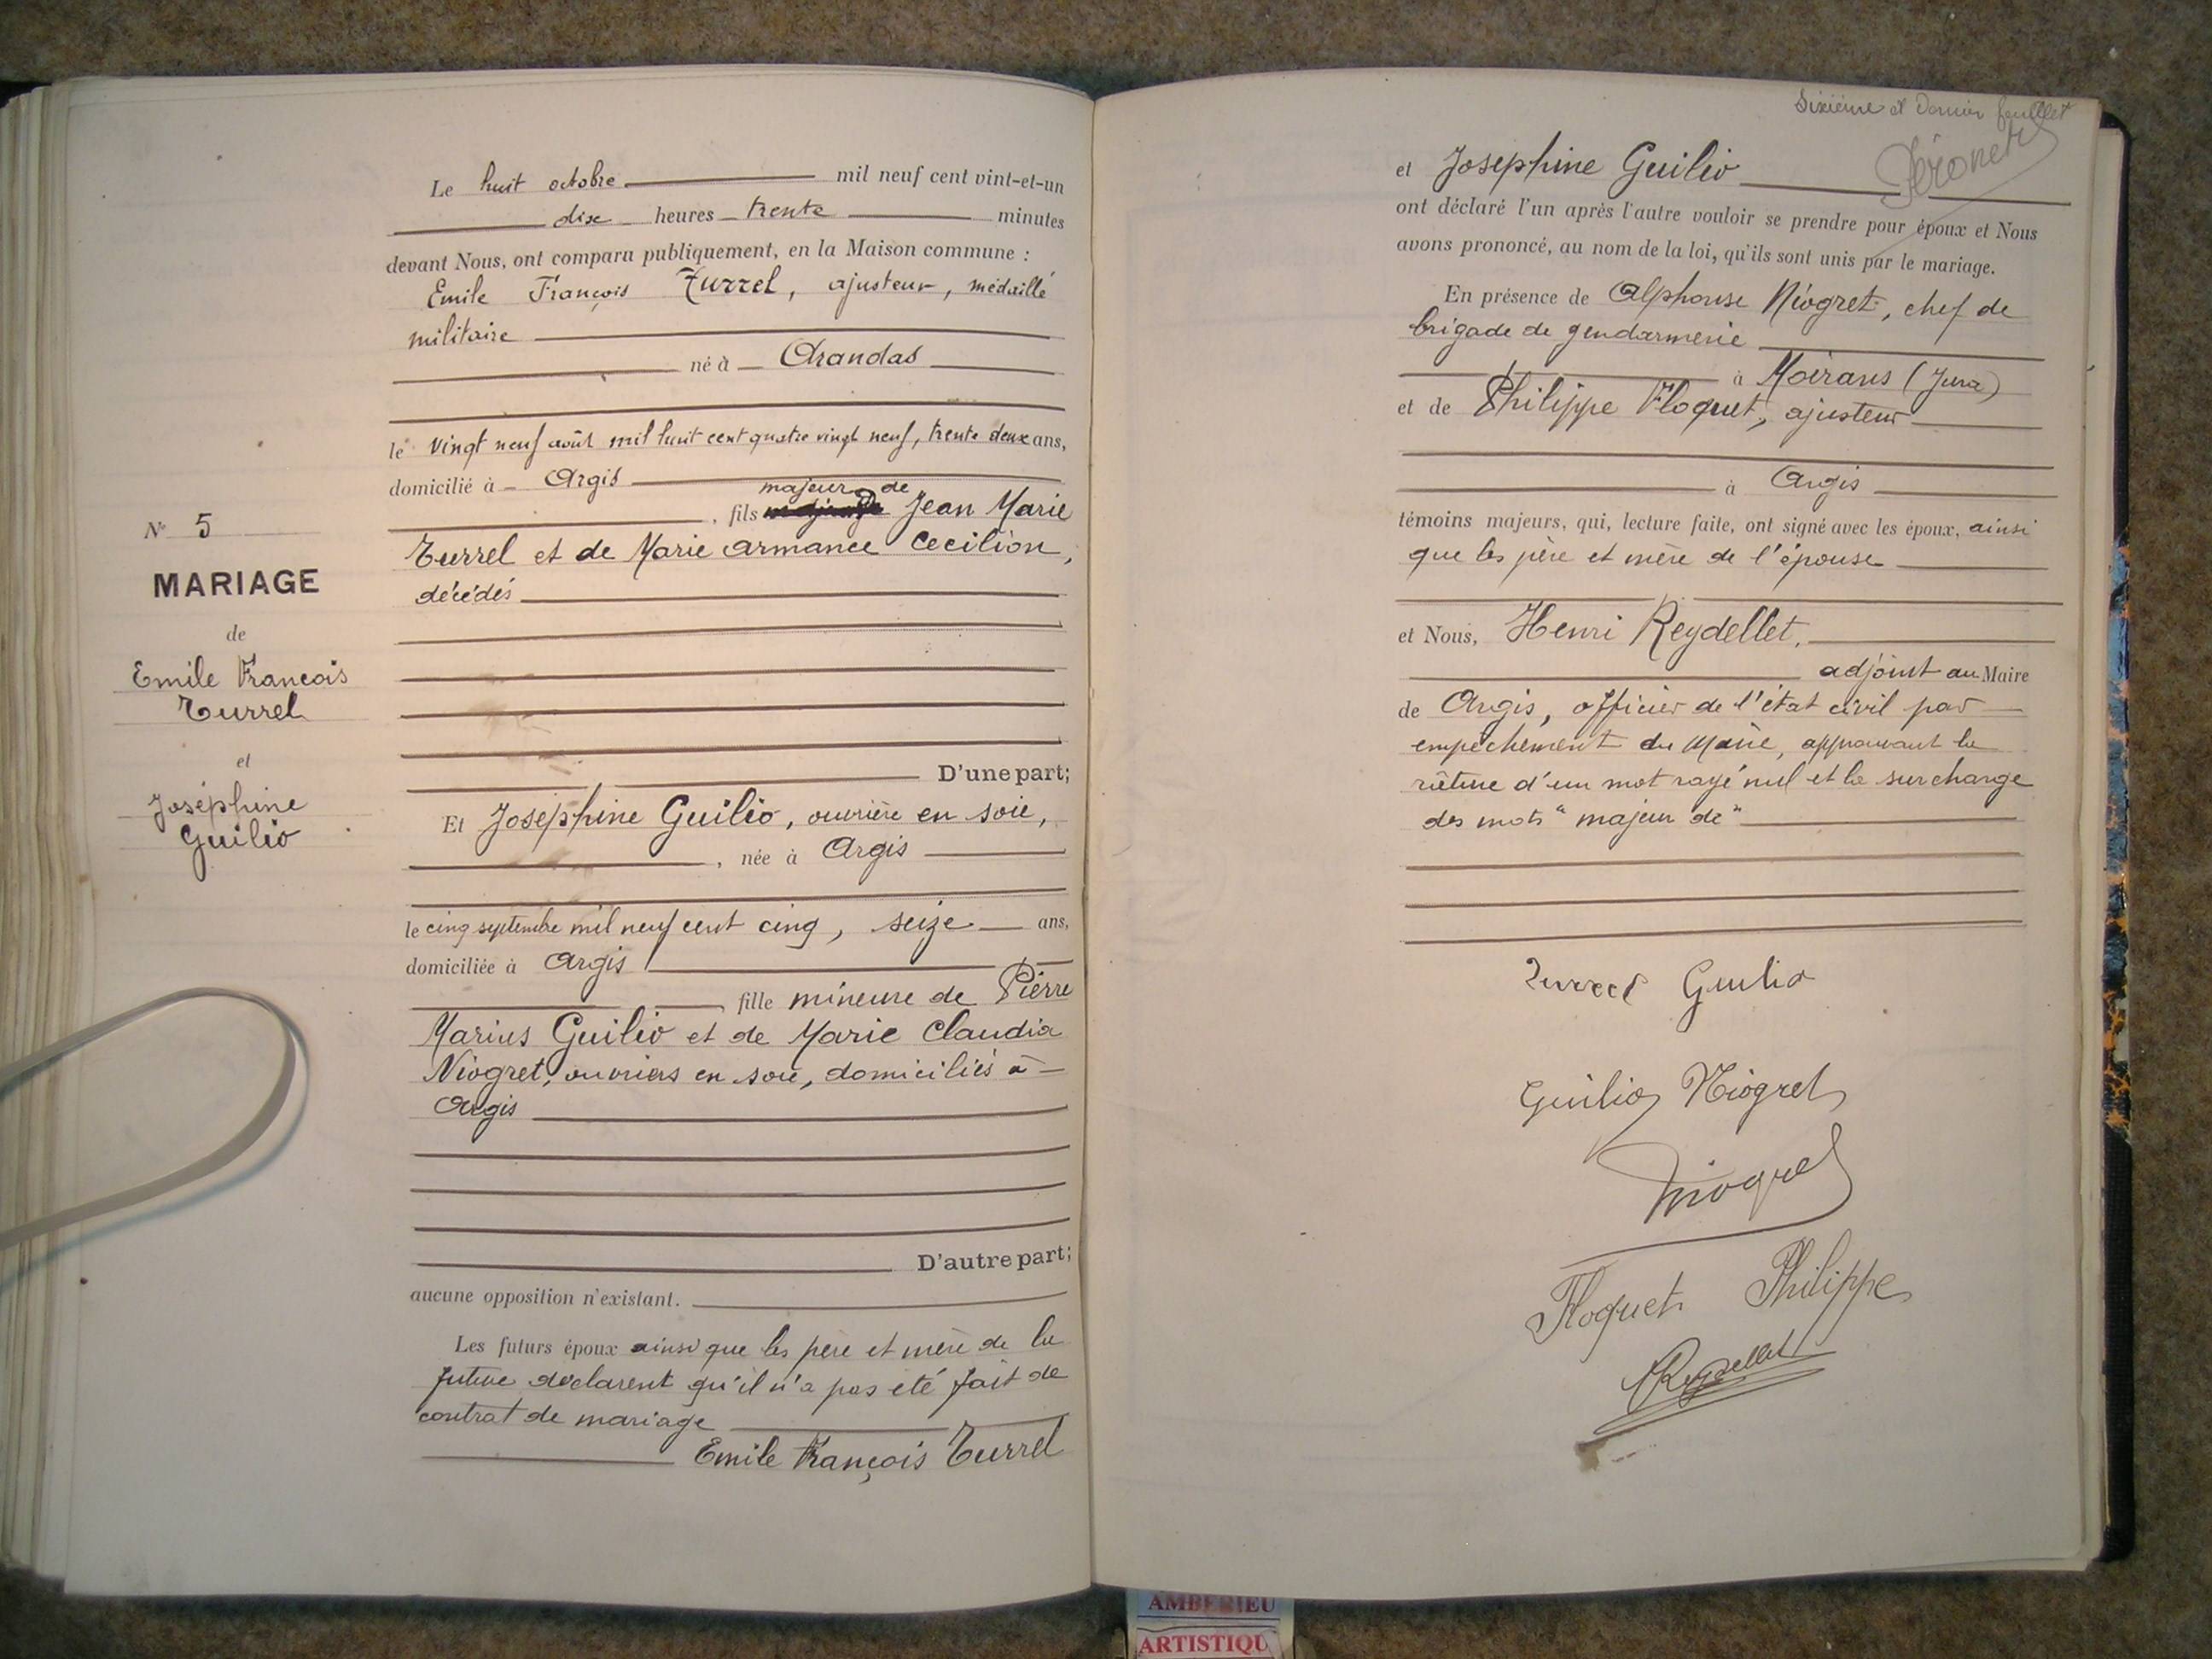 Le huit octobre mil neuf cent vint-et-un
dix heures trente minutes
devant Nous, ont comparu publiquement, en la Maison commune :
Emile François Turrel, ajusteur, médaillé
militaire
né à Arandas
le vingt neuf août mil huit cent quatre vingt neuf, trente deux ans,
domicilié à Argis
majeur de
, fils Jean Marie
Turrel et de Marie Armance Cecilion,
décédés
D'une part;
Et Joséphine Guilio, ouvrière en soie,
, née à Argis
le cinq septembre mil neuf cent cinq, seize ans,
domiciliée à Argis
, fille mineure de Pierre
Marius Guilio et de Marie Claudia
Niogret, ouvriers en soie, domiciliés à
Argis
D'autre part;
aucune opposition n'existant.
Les futurs époux ainsi que les père et mère de la
future déclarent qu'il n'a pas été fait de
contrat de mariage
Emile François Turrel
N° 5
MARIAGE
de
Emile François
Turrel
et
Joséphine
Guilio
Sixième et Dernier feuillet
et Joséphine Guilio
ont déclaré l'un après l'autre vouloir se prendre pour époux et Nous
avons prononcé, au nom de la loi, qu'ils sont unis par le mariage.
En présence de Alphonse Niogret, chef de
brigade de gendarmerie
à Moirans (Jura)
et de Philippe Floquet, ajusteur
à Argis
témoins majeurs, qui, lecture faite, ont signé avec les époux, ainsi
que les père et mère de l'épouse
et Nous, Henri Reydellet,
adjoint au Maire
de Argis, officier de l'état civil par
empêchement du Maire, approuvant la
rature d'un mot rayé nul et la surcharge
des mots "majeur de"
Turrel Guilio
Guilio Niogret
Niogret
Floquet Philippe
Reydellet
AMBERIEU
ARTISTIQU